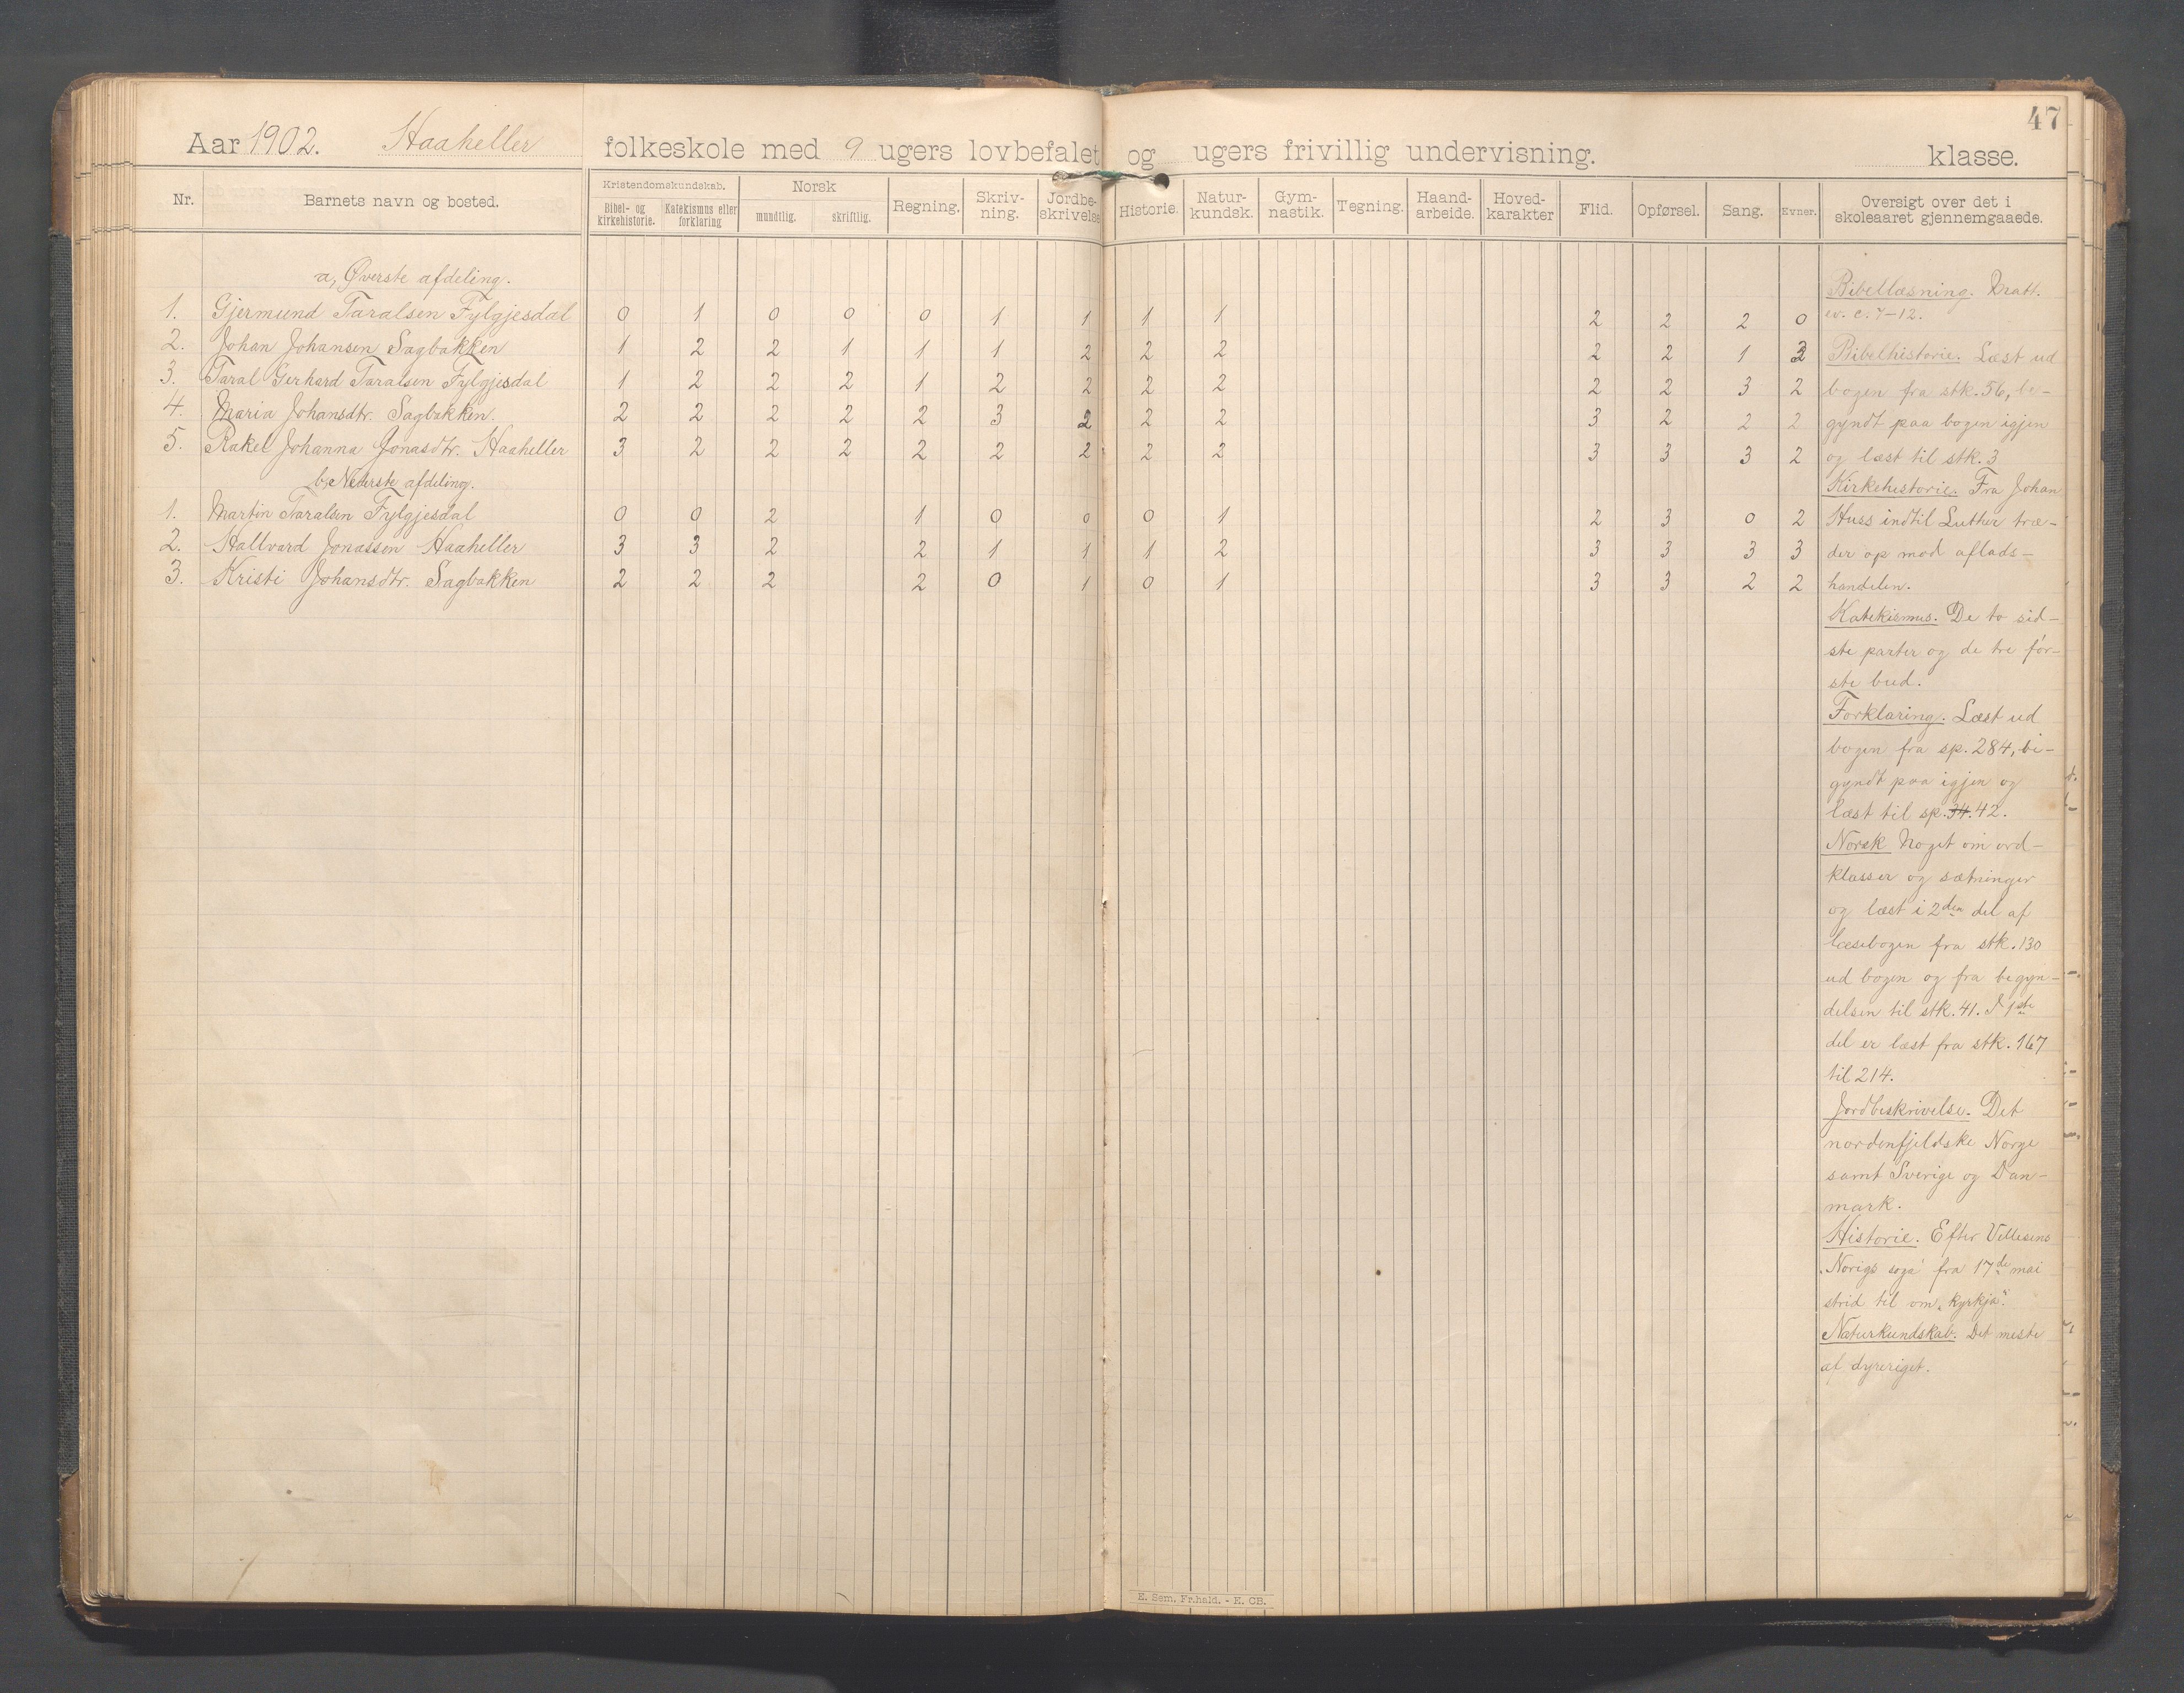 47
Aar 1902. Haaheller folkeskole med 9 ugers lovbefalet og ugers frivillig undervisning. klasse.
Nr. Barnets navn og bosted. Kristendomskundskab. Bibel- og kirkehistorie. Katekismus eller forklaring Norsk mundtlig. skriftlig. Regning. Skriv-ning. Jordbe-skrivelse Historie. Natur-kundsk. Gym-nastik. Tegning. Haand-arbeide. Hoved-karakter Flid. Opførsel. Sang. Evner. Oversigt over det i skoleaaret gjennemgaaede.
a, Øverste afdeling.
1. Gjermund Taralsen Fylgjesdal 0 1 0 0 0 1 1 1 1 2 2 2 0
2. Johan Johansen Sagbakken 1 2 2 1 1 1 2 2 2 2 2 1
3. Taral Gerhard Taralsen Fylgjesdal 1 2 2 2 1 2 2 2 2 2 2 3 2
4. Maria Johansdtr. Sagbakken. 2 2 2 2 2 3 2 2 2 3 2 2 2
5. Rakel Johanna Jonasdtr. Haaheller 3 2 2 2 2 2 2 2 2 3 3 3 2
b, Nederste afdeling.
1. Martin Taralsen Fylgjesdal 0 0 2 1 0 0 0 1 2 3 0 2
2. Hallvard Jonassen Haaheller 3 3 2 2 1 1 1 2 3 3 3 3
3. Kristi Johansdtr. Sagbakken 2 2 2 2 0 1 0 1 3 3 2 2
Bibellæsning. Matt.
ev. c. 7-12.
Bibelhistorie. Læst ud
bogen fra stk. 56, be-
gyndt paa bogen igjen
og læst til stk. 3
Kirkehistorie. Fra Johan
Huss indtil Luther træ-
der op mod aflads-
handelen.
Katekismus. De to sid-
ste parter og de tre før-
ste bud.
Forklaring. Læst ud
bogen fra sp. 284, be-
gyndt paa igjen og
læst til sp. 34. 42.
Norsk Noget om ord-
klasser og sætninger
og læst i 2den del af
læsebogen fra stk. 130
ud bogen og fra begyn-
delsen til stk. 41. I 1ste
del er læst fra stk. 167
til 214.
Jordbeskrivelse. Det
nordenfjeldske Norge
samt Sverige og Dan-
mark.
Historie. Efter
"Norigs soga" fra 17de mai
strid til om "kyrkja".
Naturkundskab. Det meste
af dyreriget.
E. Sem, Fr.hald. - E. CB.